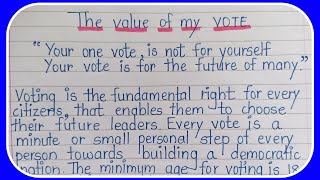 The value of my VOTE
"Your one vote is not for yourself
Your vote is for the future of many."
Voting is the fundamental right for every
citizens, that enables them to choose
their future leaders. Every vote is a
minute or small personal step of every
person towards building a democratic
nation. The minimum age for voting is 18